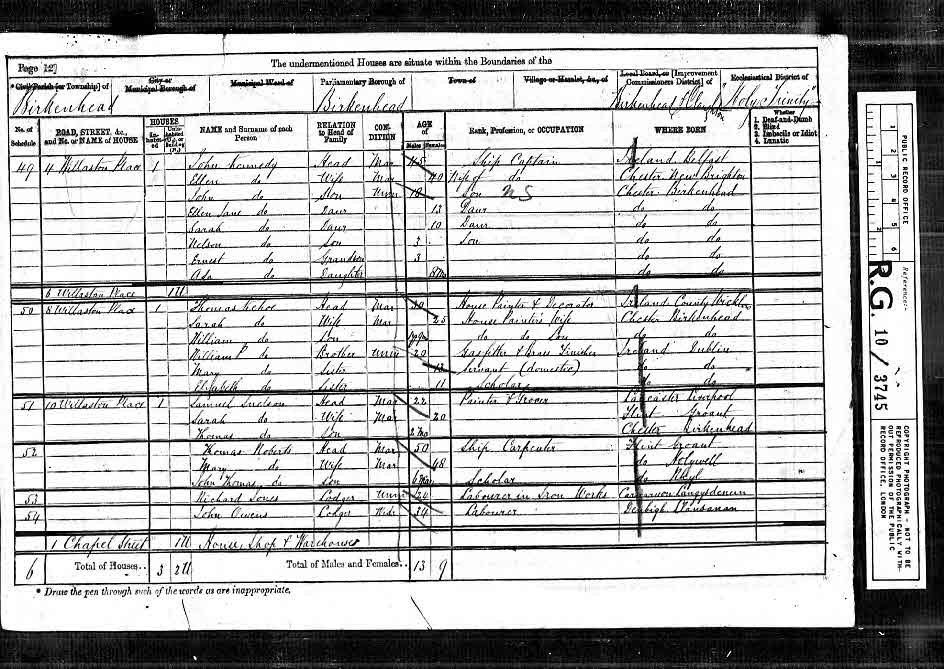 Page 12]
The undermentioned Houses are situate within the Boundaries of the
* Civil Parish (or Township) of
City or Municipal Borough of
Municipal Ward of
Parliamentary Borough of
Town of
Village or Hamlet, &c., of
Local Board, or [Improvement Commissioners District] of
Ecclesiastical District of
Birkenhead Birkenhead Birkenhead Holy Trinity
No. of Schedule
ROAD, STREET, &c., and No. or NAME of HOUSE
HOUSES
NAME and Surname of each Person
RELATION to Head of Family
CONDITION
AGE of
Males Females
Rank, Profession, or OCCUPATION
WHERE BORN
Whether
1. Deaf-and-Dumb
2. Blind
3. Imbecile or Idiot
4. Lunatic
49 4 Willaston Place 1 John Kennedy Head Mar 45 Ship Captain Ireland Belfast
Ellen do Wife Mar 40 Wife of do Chester New Brighton
John do Son Unm 18 Son NS Chester Birkenhead
Ellen Jane do Daur 13 Daur do do
Sarah do Daur 10 Daur do do
Nelson do Son 3 Son do do
Ernest do Grandson 3 do do
Ada do Daughter do do
6 Willaston Place 1U
50 8 Willaston Place 1 Thomas Head Mar 30 House Painter & Decorator Ireland County Wicklow
Sarah do Wife Mar 25 House Painter's Wife Chester Birkenhead
William do Son do do Son do do
William P do Brother Unm 20 Gasfitter & Brass Finisher Ireland Dublin
Mary do Sister 13 Servant (domestic) do do
Elizabeth do Sister 11 Scholar do do
51 10 Willaston Place 1 Samuel Head Mar 22 Painter & Lancaster Liverpool
Sarah do Wife Mar 20 Flint
Thomas do Son 2 mo Chester Birkenhead
52 Thomas Roberts Head Mar 50 Ship Carpenter Flint
Mary do Wife Mar 48 do Holywell
John Thomas do Son Scholar do Rhyl
53 Richard Jones Lodger Unm 24 Labourer in Iron Works Carnarvon
54 John Owens Lodger Wide 34 Labourer Denbigh
1 Chapel Street 1U House, Shop & Warehouse
6 Total of Houses.. 3 2U Total of Males and Females.. 13 9
* Draw the pen through such of the words as are inappropriate.
PUBLIC RECORD OFFICE
1 2 3 4 5 6
Reference:-
R.G. 10/3745
COPYRIGHT PHOTOGRAPH - NOT TO BE REPRODUCED PHOTOGRAPHICALLY WITHOUT PERMISSION OF THE PUBLIC RECORD OFFICE, LONDON